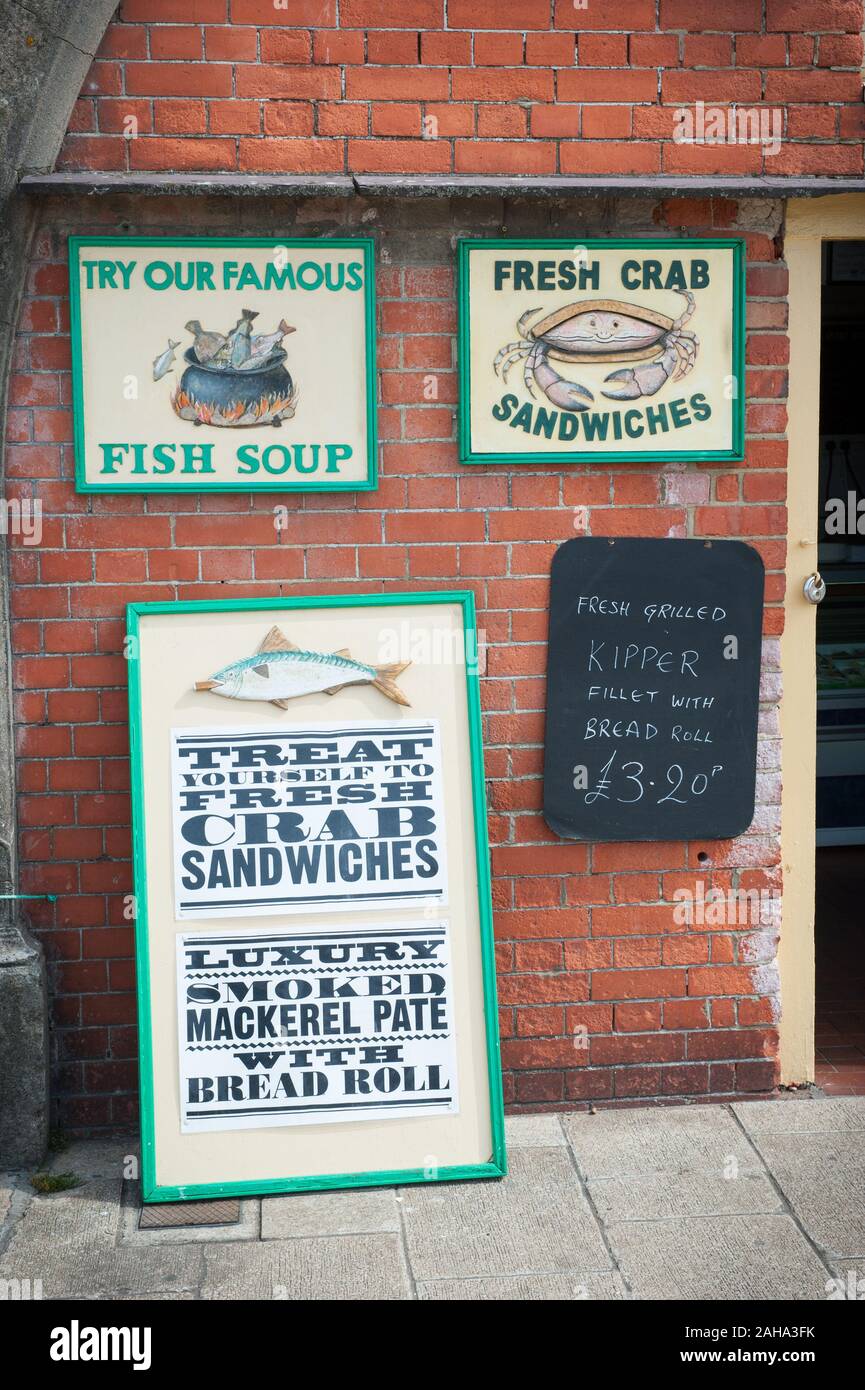 TRY OUR FAMOUS
FISH SOUP
FRESH CRAB
SANDWICHES
FRESH GRILLED
KIPPER
FILLET WITH
BREAD ROLL
£3.20P
TREAT
YOURSELF TO
FRESH
CRAB
SANDWICHES
LUXURY
SMOKED
MACKEREL PATE
WITH
BREAD ROLL
alamy
Image ID: 2AHA3FK
www.alamy.com